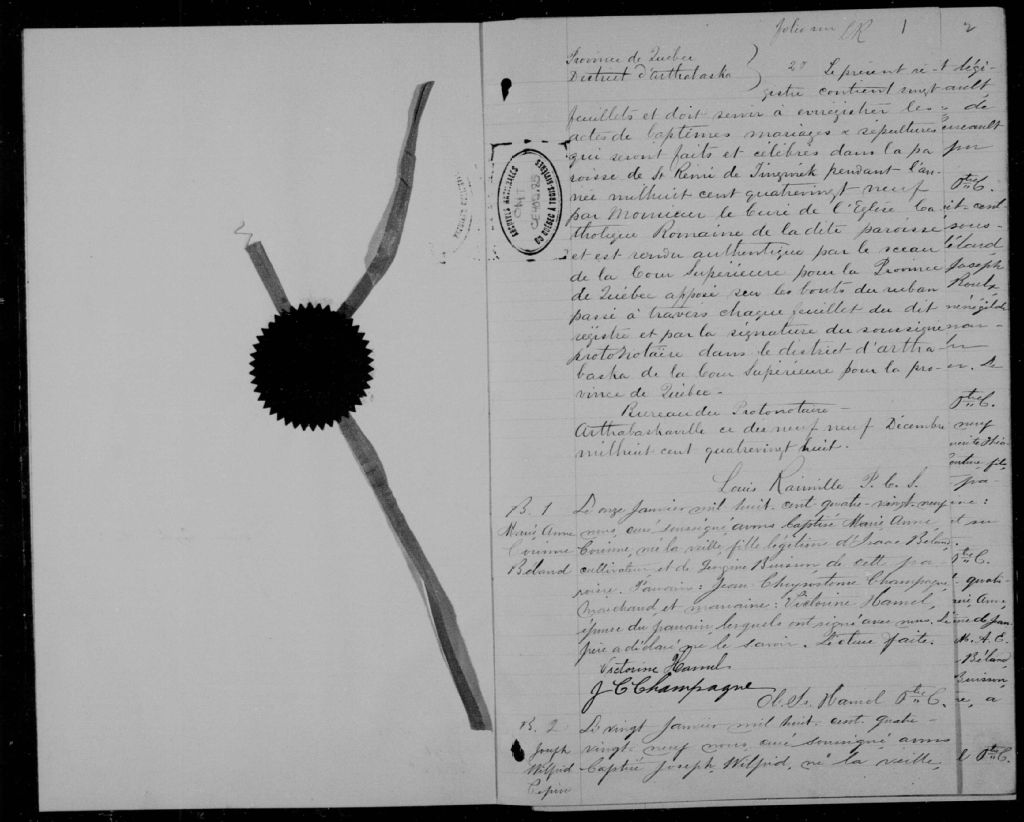 folio un LR 1
Province de Québec
District d'Arthabaska
20 Le présent ré-
gistre contient vingt
feuillets et doit servir à enrégistrer les
actes de baptêmes mariages & sépultures
qui seront faits et célébrés dans la pa
roisse de St Rémi de Tingwick pendant l'an-
née milhuit cent quatrevingt neuf
par Monsieur le Curé de l'Eglise Ca
tholique Romaine de la dite paroisse
et est rendu authentique par le sceau
de la Cour Supérieure pour la Province
de Québec apposé sur les bouts du ruban
passé à travers chaque feuillet du dit
régistre et par la signature du soussigné
protonotaire dans le district d'Artha-
baska de la Cour Supérieure pour la pro-
vince de Québec-
Bureau du Protonotaire-
Arthabaskaville ce neuf Décembre
milhuit cent quatrevingt huit.
Louis Rainville P. C. S.
B. 1
Marie, Anne
Corinne
Béland
Le onze Janvier mil huit-cent-quatre-vingt-neuf
nous, curé soussigné avons baptisé Marie, Anne,
Corinne, née la veille, fille légitime d'Isaac Béland,
cultivateur et de Georgine Buisson de cette pa-
roisse. Parrain: Jean Chrysostome Champagne,
marchand, et marraine: Victorine Hamel,
épouse du parrain, lesquels ont signé avec nous. Le
père a déclaré ne le savoir. Lecture faite.
Victorine Hamel
J C Champagne
Hamel Ptre C.
B. 2
Joseph
Wilfrid
Pépin
Le vingt Janvier mil huit-cent-quatre-
vingt-neuf nous, curé soussigné avons
baptisé Joseph, Wilfrid, né la veille,
2
ARCHIVES NATIONALES
DU QUÉBEC À TROIS-RIVIÈRES